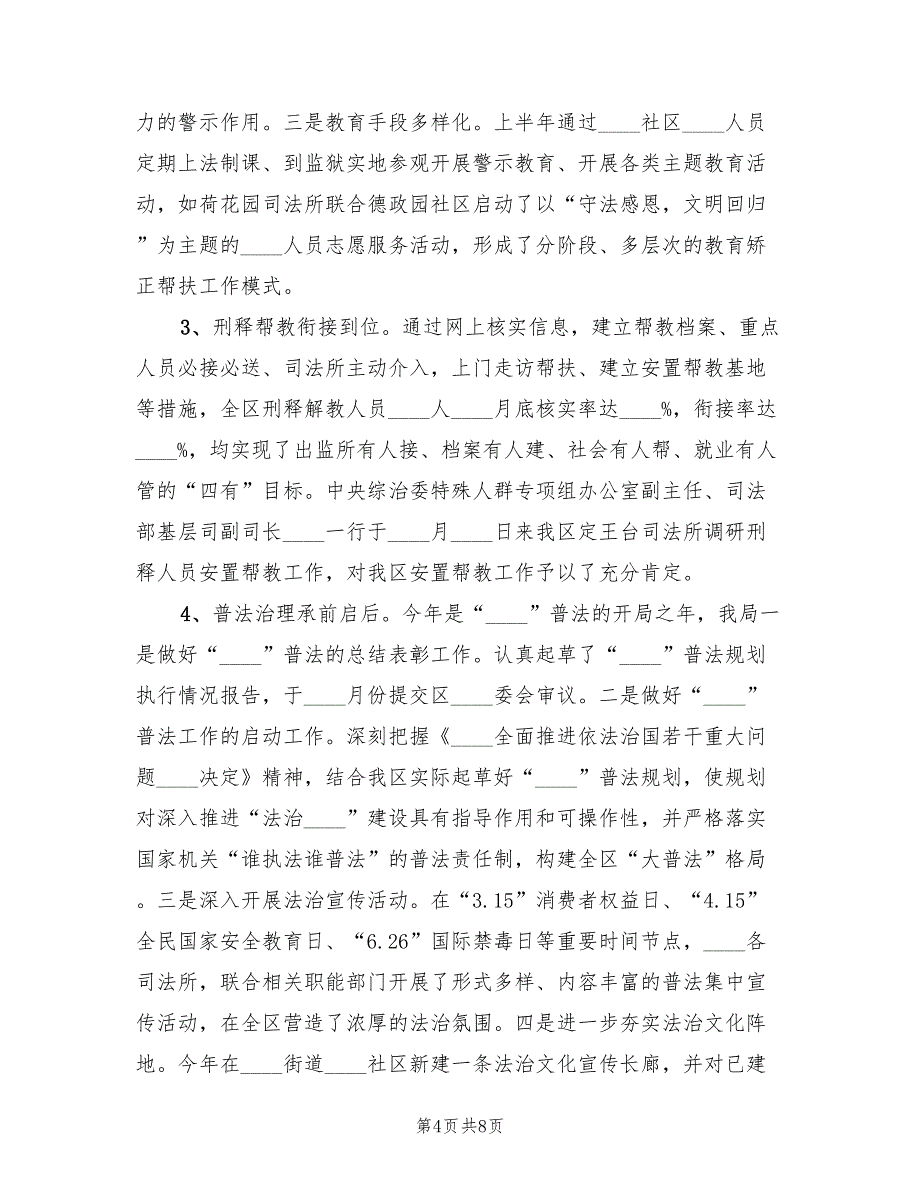 力的警示作用。三是教育手段多样化。上半年通过____社区____人员
定期上法制课、到监狱实地参观开展警示教育、开展各类主题教育活
动，如荷花园司法所联合德政园社区启动了以“守法感恩，文明回归
”为主题的____人员志愿服务活动，形成了分阶段、多层次的教育矫
正帮扶工作模式。
3、刑释帮教衔接到位。通过网上核实信息，建立帮教档案、重点
人员必接必送、司法所主动介入，上门走访帮扶、建立安置帮教基地
等措施，全区刑释解教人员____人____月底核实率达____%，衔接率达
____%，均实现了出监所有人接、档案有人建、社会有人帮、就业有人
管的“四有”目标。中央综治委特殊人群专项组办公室副主任、司法
部基层司副司长____一行于____月____日来我区定王台司法所调研刑
释人员安置帮教工作，对我区安置帮教工作予以了充分肯定。
4、普法治理承前启后。今年是“____”普法的开局之年，我局一
是做好“____”普法的总结表彰工作。认真起草了“____”普法规划
执行情况报告，于____月份提交区____委会审议。二是做好“____”
普法工作的启动工作。深刻把握《____全面推进依法治国若干重大问
题____决定》精神，结合我区实际起草好“____”普法规划，使规划
对深入推进“法治____”建设具有指导作用和可操作性，并严格落实
国家机关“谁执法谁普法”的普法责任制，构建全区“大普法”格局
。三是深入开展法治宣传活动。在“3.15”消费者权益日、“4.15”
全民国家安全教育日、“6.26”国际禁毒日等重要时间节点，____各
司法所，联合相关职能部门开展了形式多样、内容丰富的普法集中宣
传活动，在全区营造了浓厚的法治氛围。四是进一步夯实法治文化阵
地。今年在____街道____社区新建一条法治文化宣传长廊，并对已建
第4页 共8页